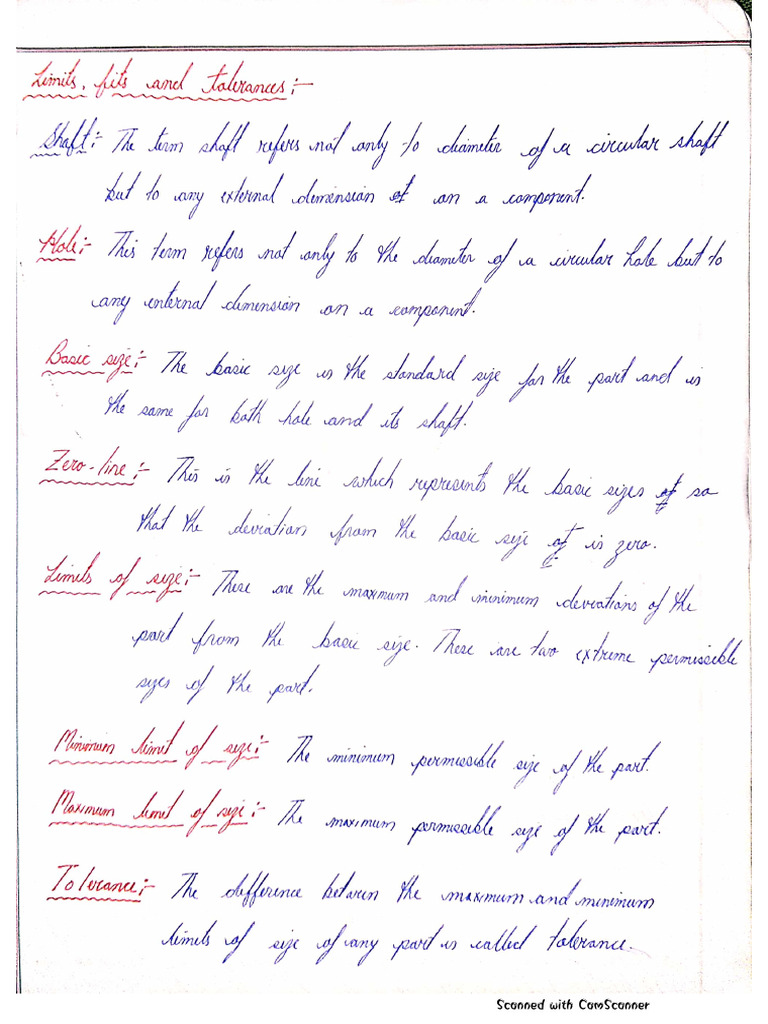 Limits, fits and tolerances:-
Shaft:- The term shaft refers not only to diameter of a circular shaft
but to any external dimension of on a component.
Hole:- This term refers not only to the diameter of a circular hole but to
any internal dimension on a component.
Basic size:- The basic size is the standard size for the part and is
the same for both hole and its shaft.
Zero-line:- This is the line which represents the basic sizes of so
that the deviation from the basic size of is zero.
Limits of size:- These are the maximum and minimum deviations of the
part from the basic size. These are two extreme permissible
sizes of the part.
Minimum limit of size:- The minimum permissible size of the part.
Maximum limit of size:- The maximum permissible size of the part.
Tolerance:- The difference between the maximum and minimum
limits of size of any part is called tolerance.
Scanned with CamScanner